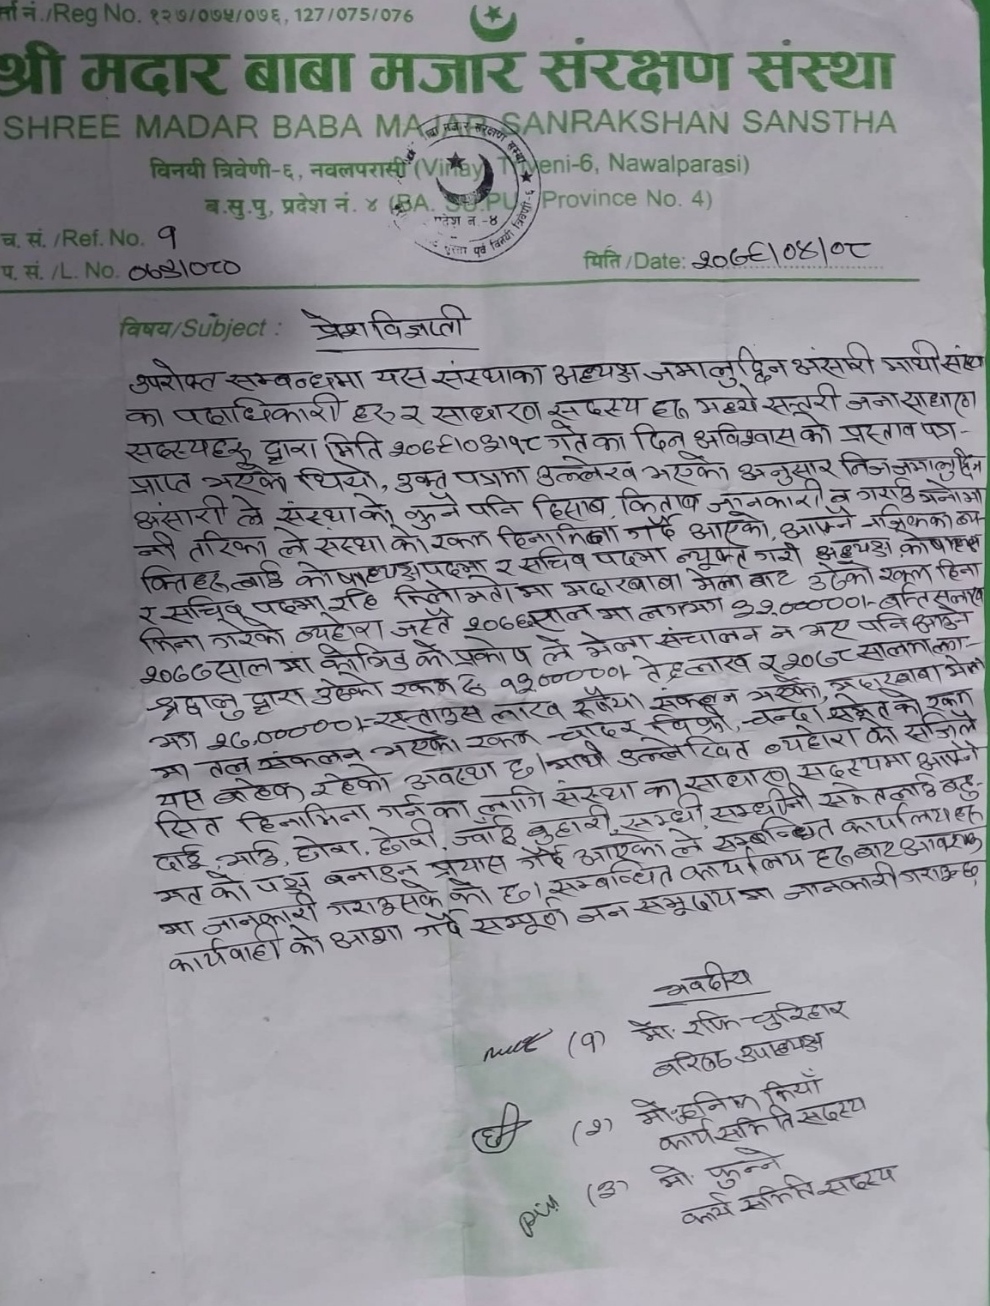 र्ता नं./Reg No. १२७/०७५/०७६, 127/075/076
श्री मदार बाबा मजार संरक्षण संस्था
SHREE MADAR BABA MAJAR SANRAKSHAN SANSTHA
विनयी त्रिवेणी-६, नवलपरासी (Vinayi Triveni-6, Nawalparasi)
ब.सु.पु, प्रदेश नं. ४ (BA. SU.PU, Province No. 4)
च. सं. /Ref. No. १
प. सं. /L. No. ०७९/०८०
मिति /Date: २०७९/०४/०८
विषय/Subject : प्रेश विज्ञप्ती
उपरोक्त सम्बन्धमा यस संस्थाका अध्यक्ष जमालुद्दिन अंसारी माथी संस्था
का पदाधिकारी हरु र साधारण सदस्य हरु मध्ये सत्तरी जना साधारण
सदस्यहरु द्वारा मिति २०७९/०३/१८ गतेका दिन अविश्वास को प्रस्ताव पत्र-
प्राप्त भएको थियो, उक्त पत्रमा उल्लेख भएको अनुसार निज जमालुद्दिन
अंसारी ले संस्थाको कुनै पनि हिसाब, किताब जानकारी न गराई मनोमा
नी तरिका ले संस्था को रकम हिनामिना गर्दै आएको, आफ्नै नजिकका व्य
क्तिहरु लाई कोषाध्यक्ष पदमा र सचिव पदमा न्यूक्त गरी अध्यक्ष कोषाध्यक्ष
र सचिव पदमा रहि मिलोमतोमा मदारबाबा मेला बाट उठेको रकम हिना
मिना गरेको व्यहोरा जस्तै २०७६ साल मा लगभग ३२,०००००/- बत्तिस लाख
२०७७ साल मा कोभिड को प्रकोप ले मेला संचालन न भए पनि आउने
श्रद्धालु द्वारा उठेको रकम रु १३०००००/- तेह्र लाख र २०७८ सालमा लग-
भग २७,०००००/- सत्ताइस लाख रुपैया संकलन भएको, मदारबाबा मेला
मा तल संकलन भएको रकम चादर बिक्री, चन्दा समेत को रकम
यस बाहेक रहेको अवस्था छ। माथी उल्लेखित व्यहोरा को सजिलै
सित हिनामिना गर्नका लागि संस्था का साधारण सदस्यमा आफ्नै
दाई, भाई, छोरा, छोरी, ज्वाँई बुहारी, सम्धी, सम्धीनी समेतलाई बहु-
मत को पक्ष बनाउन प्रयास गर्दै आएका ले सम्बन्धित कार्यालय हरु
मा जानकारी गराउसकेको छ। सम्बन्धित कार्यालय हरु बाट आवश्यक
कार्यवाही को आशा गर्दै सम्पूर्ण जन समूदाय मा जानकारी गराऊछु
भवदीय
(१) मो. रफि चुरिहार
बरिष्ठ उपाध्यक्ष
(२) मियाँ
कार्य समिति सदस्य
(३) मो. फुन्ने
कार्य समिति सदस्य